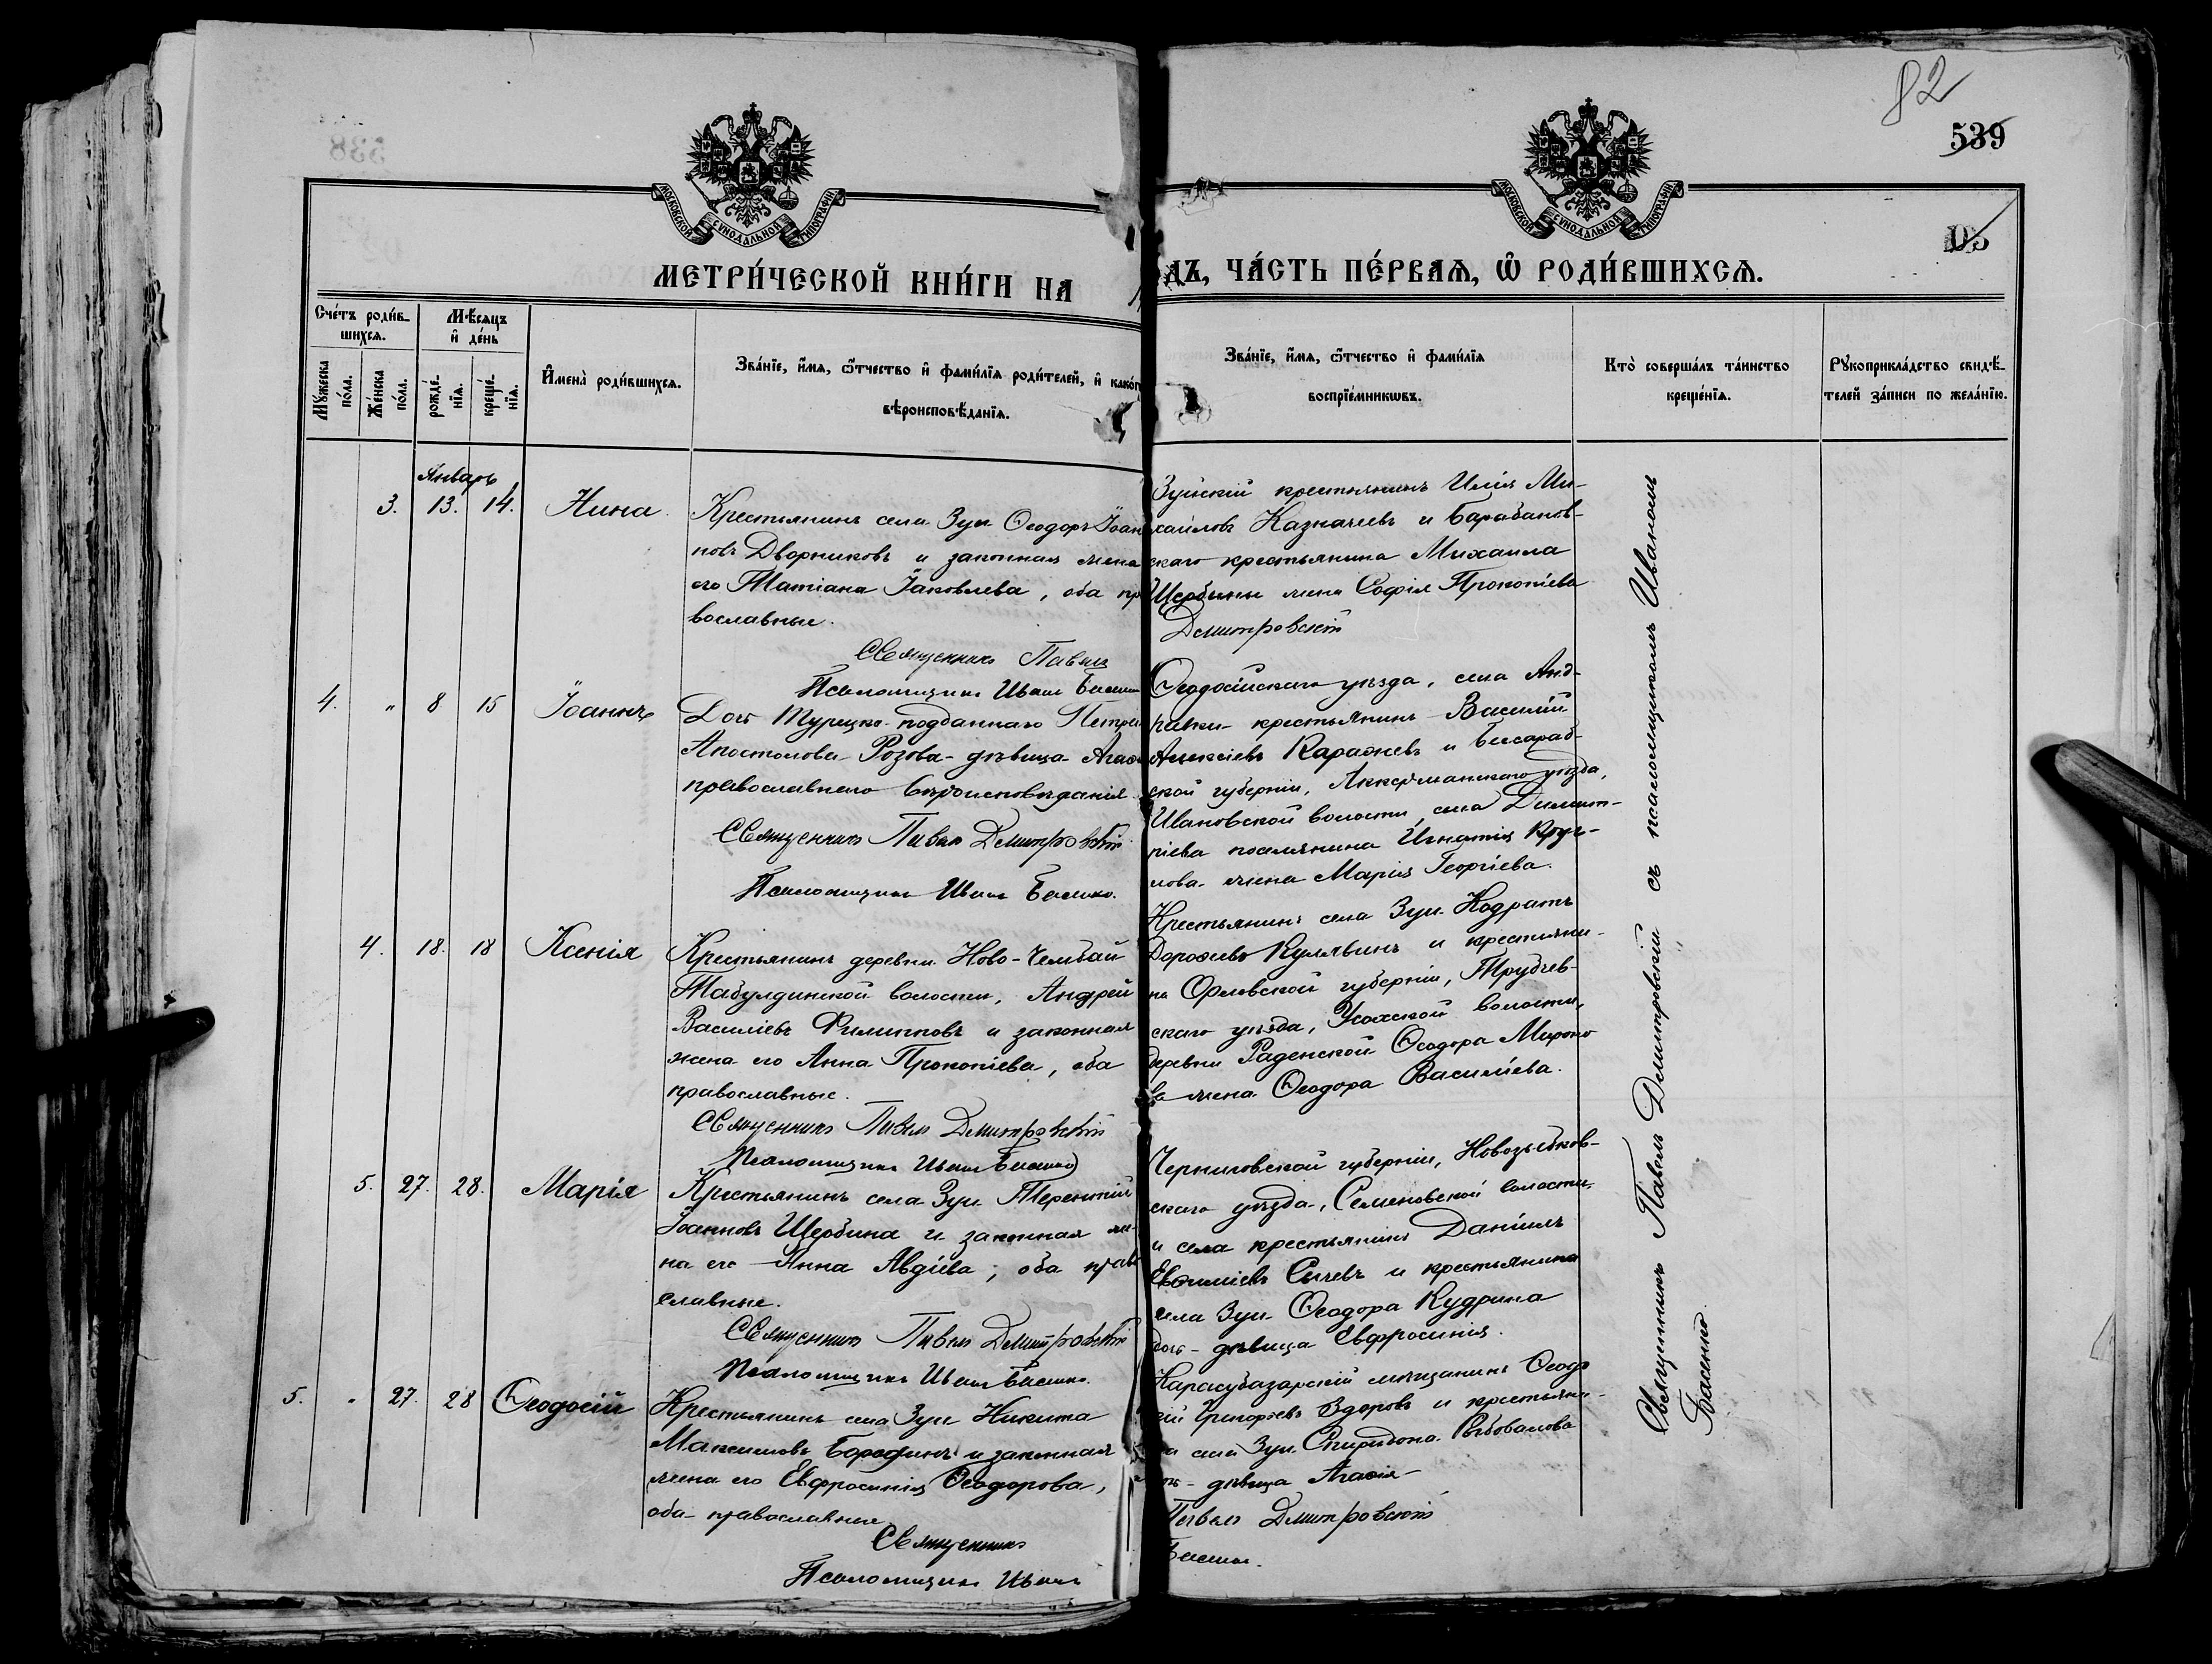 82
539
МОСКОВСКОЙ СѴНОДАЛЬНОЙ ТИПОГРАФІИ
МОСКОВСКОЙ СѴНОДАЛЬНОЙ ТИПОГРАФІИ
МЕТРИ́ЧЕСКОЙ КНИ́ГИ НА
ДЪ, ЧА́СТЬ ПЕ́РВАѦ, Ѡ҆ РОДИ́ВШИХСѦ.
Сче́тъ роди́в-
шихсѧ.
Мꙋ́жеска
по́ла.
Же́нска
по́ла.
Мѣ́сѧцъ
и҆ де́нь
рожде́-
нїѧ.
креще́-
нїѧ.
И҆мена̀ роди́вшихсѧ.
Зва́нїе, и҆́мѧ, ѻ҆́тчество и҆ фами́лїѧ роди́телей, и҆ како́г
вѣроисповѣ́данїѧ.
Зва́нїе, и҆́мѧ, ѻ҆́тчество и҆ фами́лїѧ
воспрїе́мникѡвъ.
Кто̀ соверша́лъ та́инство
креще́нїѧ.
Рꙋкоприкла́дство свидѣ́-
телей за́писи по жела́нїю.
Январь
3. 13. 14. Нина.
Крестьянинъ села Зуи Ѳеодоръ Іоан
новъ Дворниковъ и законная жена
его Татіана Іаковлева, оба пр
вославные.
Священникъ Павелъ
Псаломщикъ Иванъ Басенко
Зуйскій крестьянинъ Илія Ми-
хайловъ Казначеевъ и Барабанов-
скаго крестьянина Михаила
Щербины жена Софія Прокопіева
Дмитровскій
4. " 8 15 Іоаннъ
Дочь Турецко-подданнаго Петра
Апостолова Розова - дѣвица Агаѳі
православнаго вѣроисповѣданія.
Священникъ Павелъ Дмитровскій
Псаломщикъ Иванъ Басенко.
Ѳеодосійскаго уѣзда, села Анд-
реевки крестьянинъ Василій
Алексіевъ Каражевъ и Бессараб-
ской губерніи, Аккерманскаго уѣзда,
Ивановской волости, села Димит-
ріева поселянина Игнатія Круг-
лова жена Марія Георгіева.
4. 18. 18 Ксенія
Крестьянинъ деревни Ново-Чембай
Табулдинской волости, Андрей
Василіевъ Филипповъ и законная
жена его Анна Прокопіева, оба
православные.
Священникъ Павелъ Дмитровскій
Псаломщикъ Иванъ Басенко
Крестьянинъ села Зуи Кодратъ
Дороѳеевъ Кулявинъ и крестьяни-
на Орловской губерніи, Трубчев-
скаго уѣзда, Усохской волости,
деревни Раденской Ѳеодора Мироно
ва жена Ѳеодора Василіева.
5. 27. 28. Марія
Крестьянинъ села Зуи Терентій
Іоанновъ Щербина и законная же-
на его Анна Авдіева, оба право
славные.
Священникъ Павелъ Дмитровскій
Псаломщикъ Иванъ Басенко.
Черниговской губерніи, Новозыбков-
скаго уѣзда, Семеновской волости
и села крестьянинъ Даніилъ
Евѳиміевъ Сычевъ и крестьянина
села Зуи Ѳеодора Кудрина
дочь - дѣвица Евфросинія.
5. " 27. 28 Ѳеодосій
Крестьянинъ села Зуи Никита
Максимовъ Бородинъ и законная
жена его Евфросинія Ѳеодорова,
оба православные.
Священникъ
Псаломщикъ Иванъ
Карасубазарскій мѣщанинъ Ѳеодо
сій Григорьевъ Здоровъ и крестьяни-
на села Зуи Спиридона
дочь - дѣвица Агаѳія
Павелъ Дмитровскій
Басенко.
Священникъ Павелъ Дмитровскій съ псаломщикомъ Иваномъ
Басенко.